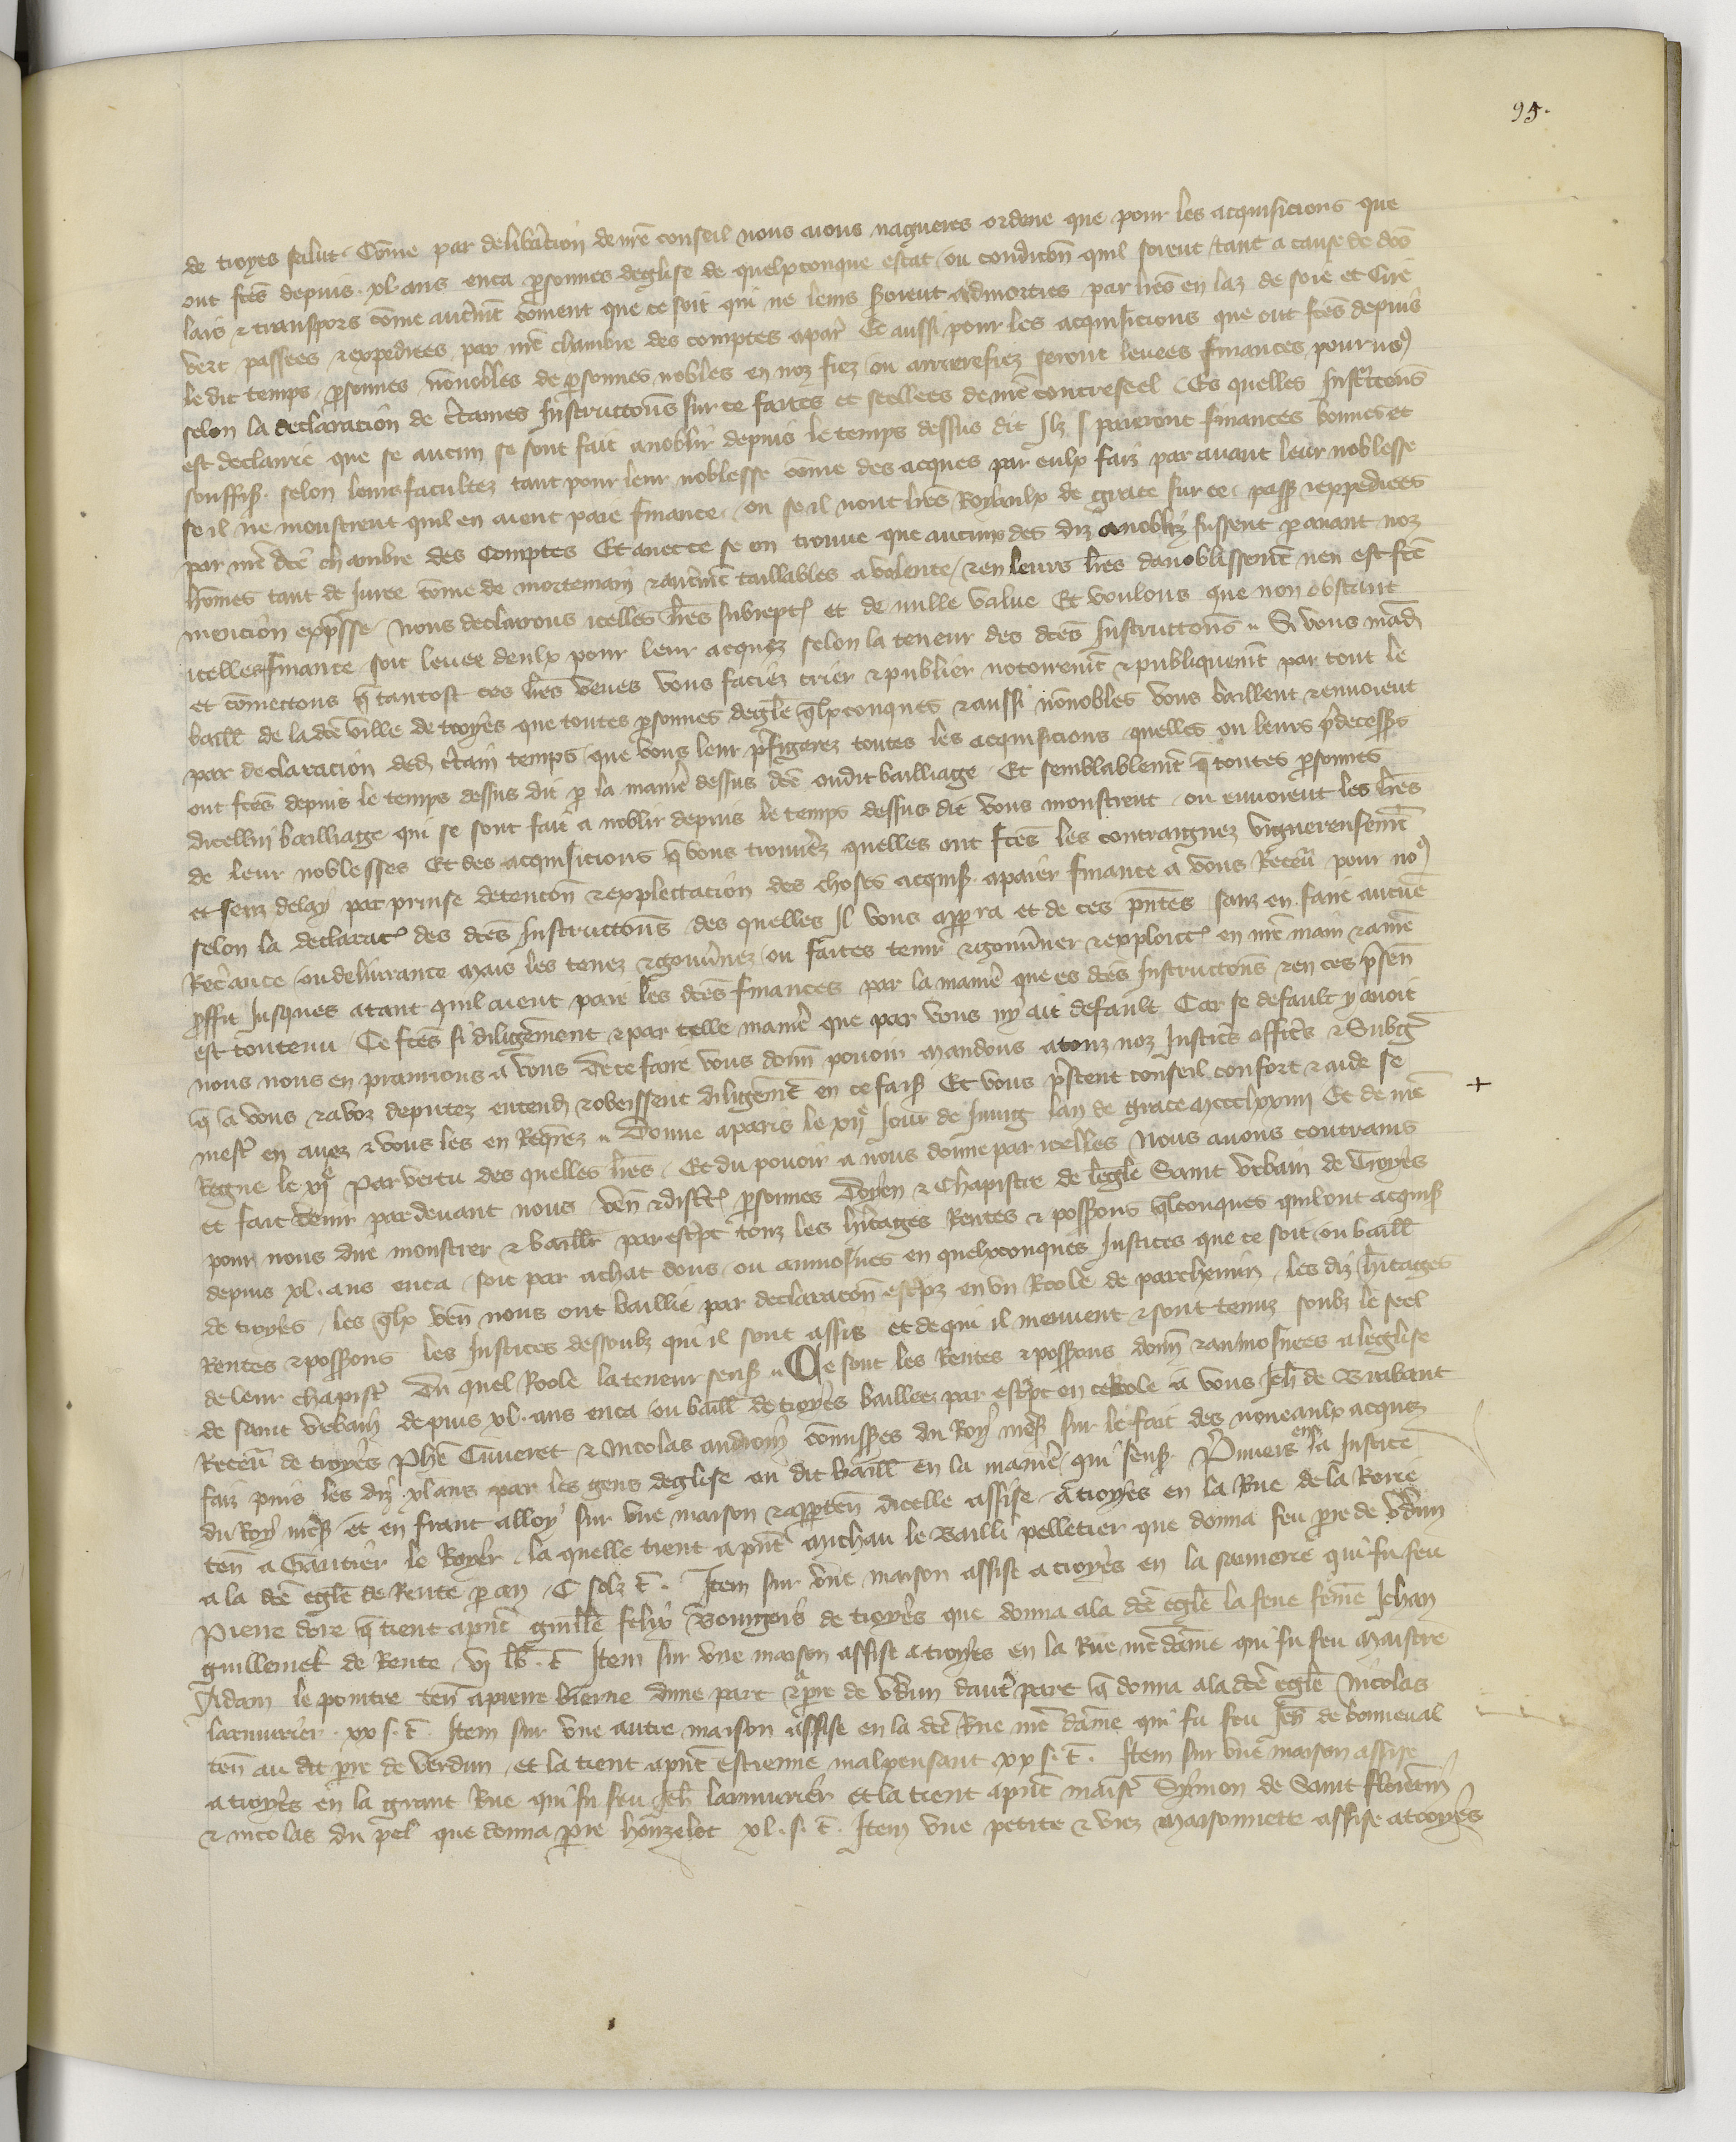 95.
de troyes salut. Cõme par deliberacion de nrẽ conseil nous avons nagueres ordene que pour les acquisicions que
ont fctẽs depuis .xl. ans enca personnes deglise de quelxconque estat ou condicõn quil soient tant a cause de dõs
lais & transpors cõme autremt coment que ce soit qui ne leurs soient admorties par lrẽs en laz de soie et cire
vert passees & expedites par nrẽ chambre des comptes a par Et aussi pour les acquisicions que ont fctẽs depuis
ledit temps personnes nõnobles de personnes nobles en noz fiez ou arrierefiez seront levees finances pour nous
selon la declaracion de certaines Instruccõns sur ce faites et scellees de nrẽ contreseel Es quelles Instruccõns
est declairie que se aucun se sont fait anoblir depuis le temps dessus dit Ilz paieront finances bonnes et
souffis. selon leurs facultez tant pour leur noblesse cõme des acques par eulx faiz par avant leur noblesse
se il ne monstrent quil en aient paie finance ou se il nont lrẽs Royaulx de grace sur ce pass & expediees
par nrẽ dcẽ chambre des Comptes Et avec ce se on trouve que aucuns des diz anobliz fussent p avant noz
hõmes tant de Juree cõme de mortemain & autremt taillables a volente & en leurs lrẽs danoblissemt nen est fctẽ
mencion expresse Nous declarons icelles lrẽs subrept et de nulle value Et voulons que non obstant
icelles finance soit levee deulx pour leur acquez selon la teneur des dcẽs Instruccõns Si vous mand
et cõmettons q tantost ces lrẽs veues vous faciez crier & publier notoiremt & publiquemt par tout le
baill de la dcẽ ville de troyes que toutes personnes deglẽ qlxconques & aussi nõnobles vous baillent & envoient
par declaracion ded certain temps que vous leur prefigerez toutes les acquisicions quelles ou leurs predecess
ont fctẽs depuis le temps dessus dit p la maniẽ dessus dcẽ oudit bailliage Et semblablemt q toutes personnes
dicellui bailliage qui se sont fait a noblir depuis le temps dessus dit vous monstrent ou envoient les lrẽs
de leur noblesses Et des acquisicions q vous trouverez quelles ont fctẽs les contraignez viguereusemt
et senz delay par prinse detencõn & explettacion des choses acquis. a paier finance a vous Receu pour nous
selon la declarac des dcẽs Instruccõns des quelles Il vous apperra et de ces pntes sanz en faire aucuẽ
Recreance ou delivrance mais les tenez & gouvnez ou faites tenir & gouvner & exploict en nrẽ main & a nrẽ
proffit Jusques a tant quil aient paie les dcẽs finances par la maniẽ que es dcẽs Instruccõns & en ces presen
est contenu Ce fctẽs si diligemment & par telle maniẽ que par vous ny ait default Car se default y avoit
nous nous en prenrions a vous De ce faire vous donn povoir Mandons a touz noz Justiciẽs officẽs & Subg
q a vous & a voz deputez entend & obeissent diligemt en ce fais Et vous prestent conseil confort & aide se +
mest en avez & vous les en Requerez Donne a paris le xije Jour de Juing lan de grace mccclxxiiij Et de nrẽ
Regne le xje Par vertu des quelles lrẽs Et du povoir a nous donne par icelles Nous avons contrains
et fait venir par devant nous ven & discret personnes Doyen & Chapistre de leglẽ Saint Urbain de Troyes
pour nous dire monstrer & baill par escript touz les heritages Rentes & possons qlconques quil ont acquis
depuis xl. ans enca soit par achat dons ou aumosnes en quelxconques Justices que ce soit ou baill
de troyes les qlx ven nous ont baillie par declaracõn escripz en un Roole de parchemin les diz heritages
Rentes & possons les Justices dessoubz qui il sont assis et de qui il meuvent & sont tenuz soubz le seel
de leur chapistre Du quel Roole la teneur sens. Ce sont les Rentes & possons donn & aumosnees a leglise
de saint Urbain depuis xl. ans enca ou baill de troyes baillees par escript en ce Role a vous Jeh de Brabant
Receu de troyes Phẽ Cuveret & Nicolas androin cõmisses du Roy nres sur le fait des nouveaulx acques
faiz puis les diz xl ans par les gens deglise ou dit baill en la maniẽ qui sens. Primiers en la Justice
du Roy nres et en franc alloy sur une maison & apparten dicelle assise a troyes en la Rue de la Corrie
ten a Gautier le Royer la quelle tient a pnt Michau le Bailli pelletier que donna feu pre de Vdun
a la dcẽ eglẽ de Rente p an C solz t. Item sur une maison assise a troyes en la saunerie qui fu feu
Pierre dore q tient a pnt Guillẽ felix Bourgois de troyes que donna a la dcẽ eglẽ la feue fẽme Jehan
guillemet de Rente vj lb. t Item sur une maison assise a troyes en la Rue nrẽ dame qui fu feu Maistre
Adam le pointre ten a pierre bierne dune part & a pre de Vdun dautre part q donna a la dcẽ eglẽ Nicolas
larmurier .xx s. t. Item sur une autre maison assise en la dcẽ Rue nrẽ dame qui fu feu Jeh de bonneval
ten au dit pre de verdun et la tient a pnt Estienne malpensant xx s. t. Item sur une maison assise
a troyes en la grant Rue qui fu feu Jeh larmurier et la tient a pnt maist Symon de Saint florentin
& nicolas du pel que donna pre honzelot xl. s. t. Item une petite & viez maisonnette assise a troyes